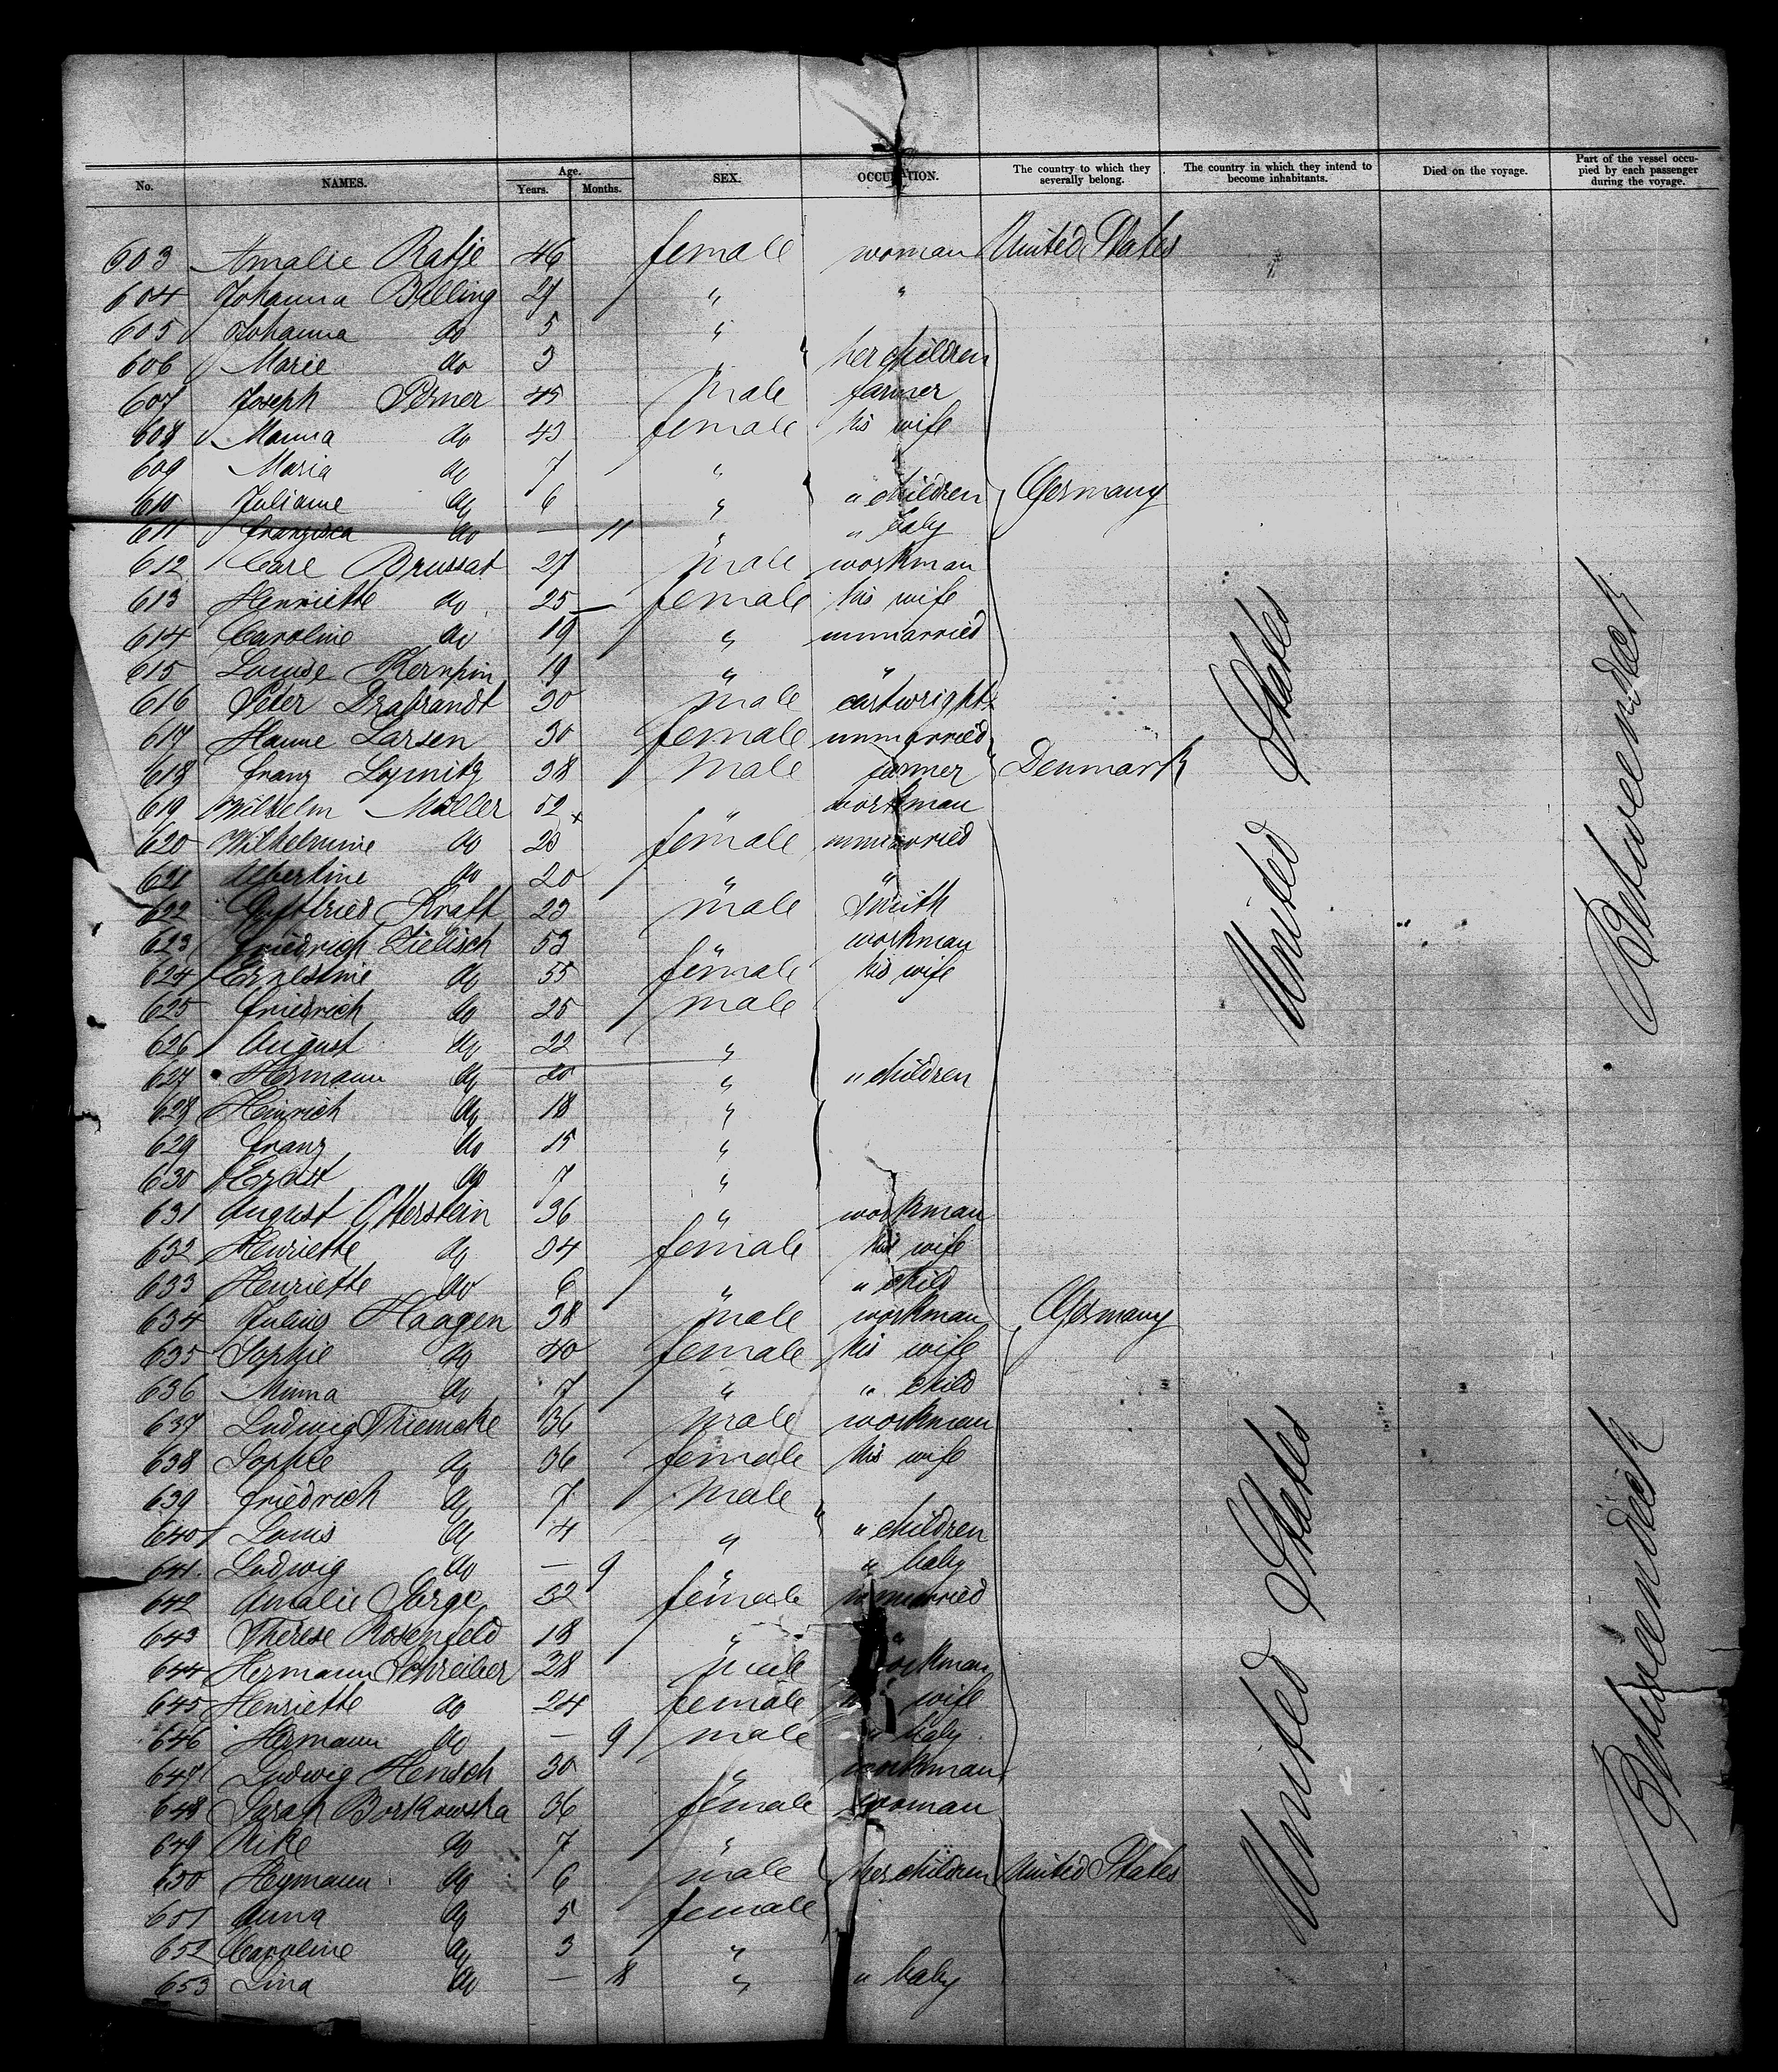 No. NAMES. Age. Years. Months. SEX. OCCUPATION. The country to which they severally belong. The country in which they intend to become inhabitants. Died on the voyage. Part of the vessel occupied by each passenger during the voyage.
603 Amalie Ratje 46 female woman United States
604 Johanna Billing 27 " "
605 Johanna do 5 "
606 Marie do 3 " her children
607 Joseph Perner 45 male farmer
608 Manna do 43 female his wife
609 Maria do 7 "
610 Juliane do 6 " " children Germany
611 Franzisca do — 11 " " baby
612 Carl Brussat 27 male workman
613 Henriette do 25 female his wife
614 Caroline do 19 " unmarried
615 Louise Kernpin 19 " "
616 Peter Drabrandt 30 male cartwright
617 Hanne Larsen 30 female unmarried
618 Franz 38 male farmer Denmark
619 Wilhelm Müller 52 " workman
620 Wilhelmine do 23 female unmarried
621 Albertine do 20 " "
622 Gottfried Kraft 23 male smith
623 Friedrich Zielisch 53 " workman
624 Ernestine do 55 female his wife
625 Friedrich do 25 male
626 August do 22 "
627 Hermann do 20 " " children
628 Heinrich do 18 "
629 Franz do 15 "
630 Ernst do 7 "
631 August Otterstein 36 " workman
632 Henriette do 34 female his wife
633 Henriette do 6 " " child
634 Julius Haagen 38 male workman Germany
635 Sophie do 40 female his wife
636 Minna do 7 " " child
637 Ludwig Thiemcke 36 male workman
638 Sophie do 36 female his wife
639 Friedrich do 7 male
640 Louis do 4 " " children
641 Ludwig do — 9 " " baby
642 Amalie Sarge 32 female unmarried
643 Therese Rosenfeld 18 " "
644 Hermann Schreiber 28 male workman
645 Henriette do 24 female his wife
646 Hermann do — 9 male " baby
647 Ludwig Hensch 30 " workman
648 Sarah Borkowska 36 female woman
649 Rike do 7 "
650 Heymann do 6 male her children United States
651 Anna do 5 female
652 Caroline do 3 "
653 Lina do — 8 " " baby
United States
Betweendeck
United States
Betweendeck